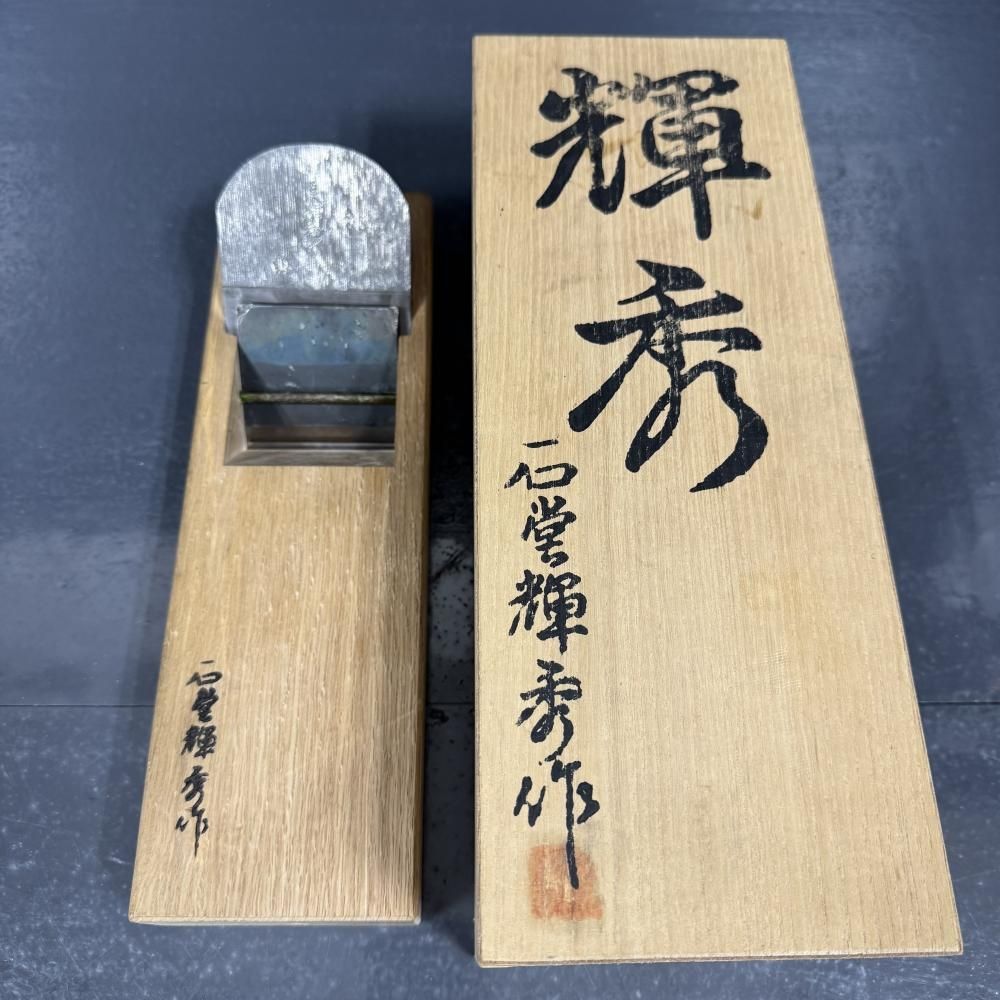 輝秀
石堂輝秀作
石堂輝秀作